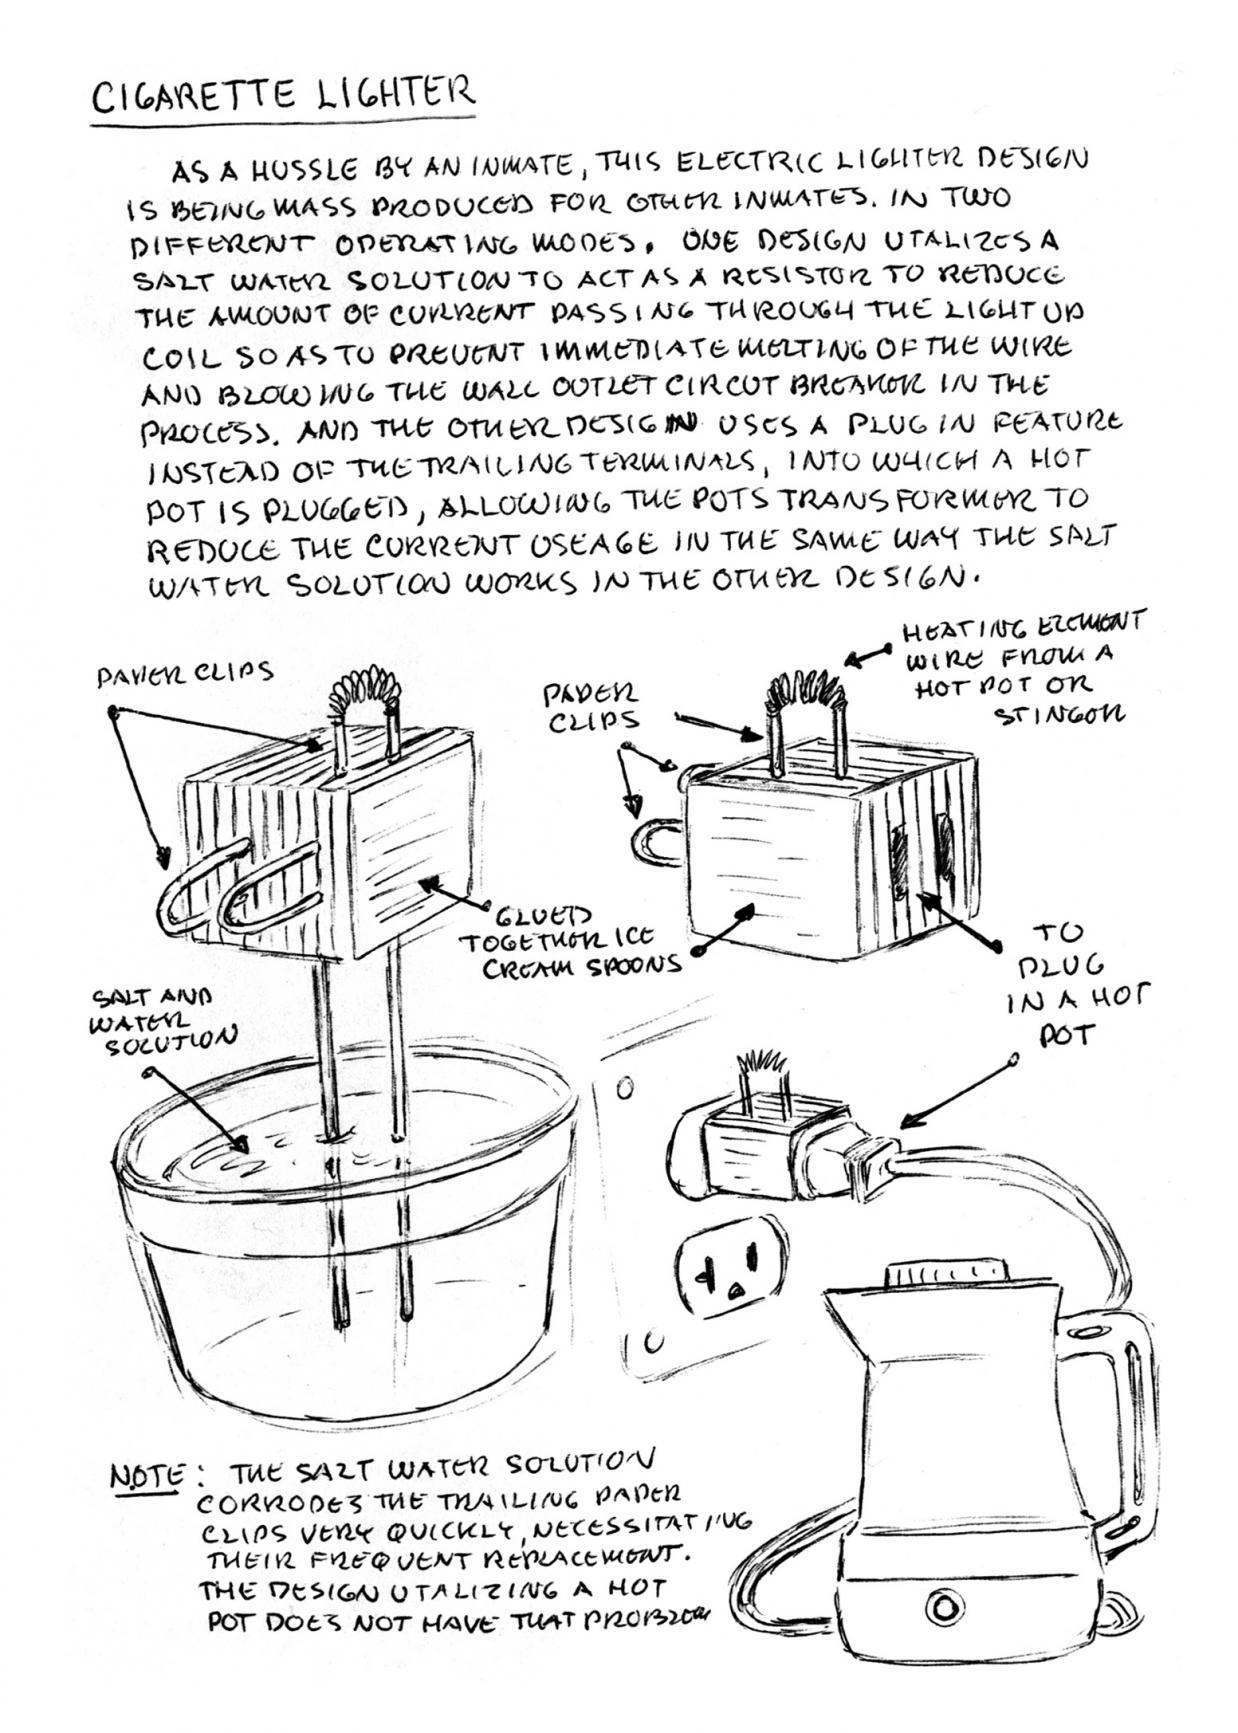 CIGARETTE LIGHTER
AS A HUSSLE BY AN INMATE, THIS ELECTRIC LIGHTER DESIGN
IS BEING MASS PRODUCED FOR OTHER INMATES. IN TWO
DIFFERENT OPERATING MODES. ONE DESIGN UTALIZES A
SALT WATER SOLUTION TO ACT AS A RESISTOR TO REDUCE
THE AMOUNT OF CURRENT PASSING THROUGH THE LIGHT UP
COIL SO AS TO PREVENT IMMEDIATE MELTING OF THE WIRE
AND BLOWING THE WALL OUTLET CIRCUT BREAKER IN THE
PROCESS. AND THE OTHER DESIGN USES A PLUG IN FEATURE
INSTEAD OF THE TRAILING TERMINALS, INTO WHICH A HOT
POT IS PLUGGED, ALLOWING THE POTS TRANSFORMER TO
REDUCE THE CURRENT USEAGE IN THE SAME WAY THE SALT
WATER SOLUTION WORKS IN THE OTHER DESIGN.
HEATING ELEMENT
WIRE FROM A
HOT POT OR
STINGER
PAPER CLIPS
PAPER
CLIPS
GLUED
TOGETHER ICE
CREAM SPOONS
TO
PLUG
IN A HOT
POT
SALT AND
WATER
SOLUTION
NOTE: THE SALT WATER SOLUTION
CORRODES THE TRAILING PAPER
CLIPS VERY QUICKLY, NECESSITATING
THEIR FREQUENT REPLACEMENT.
THE DESIGN UTALIZING A HOT
POT DOES NOT HAVE THAT PROBLEM